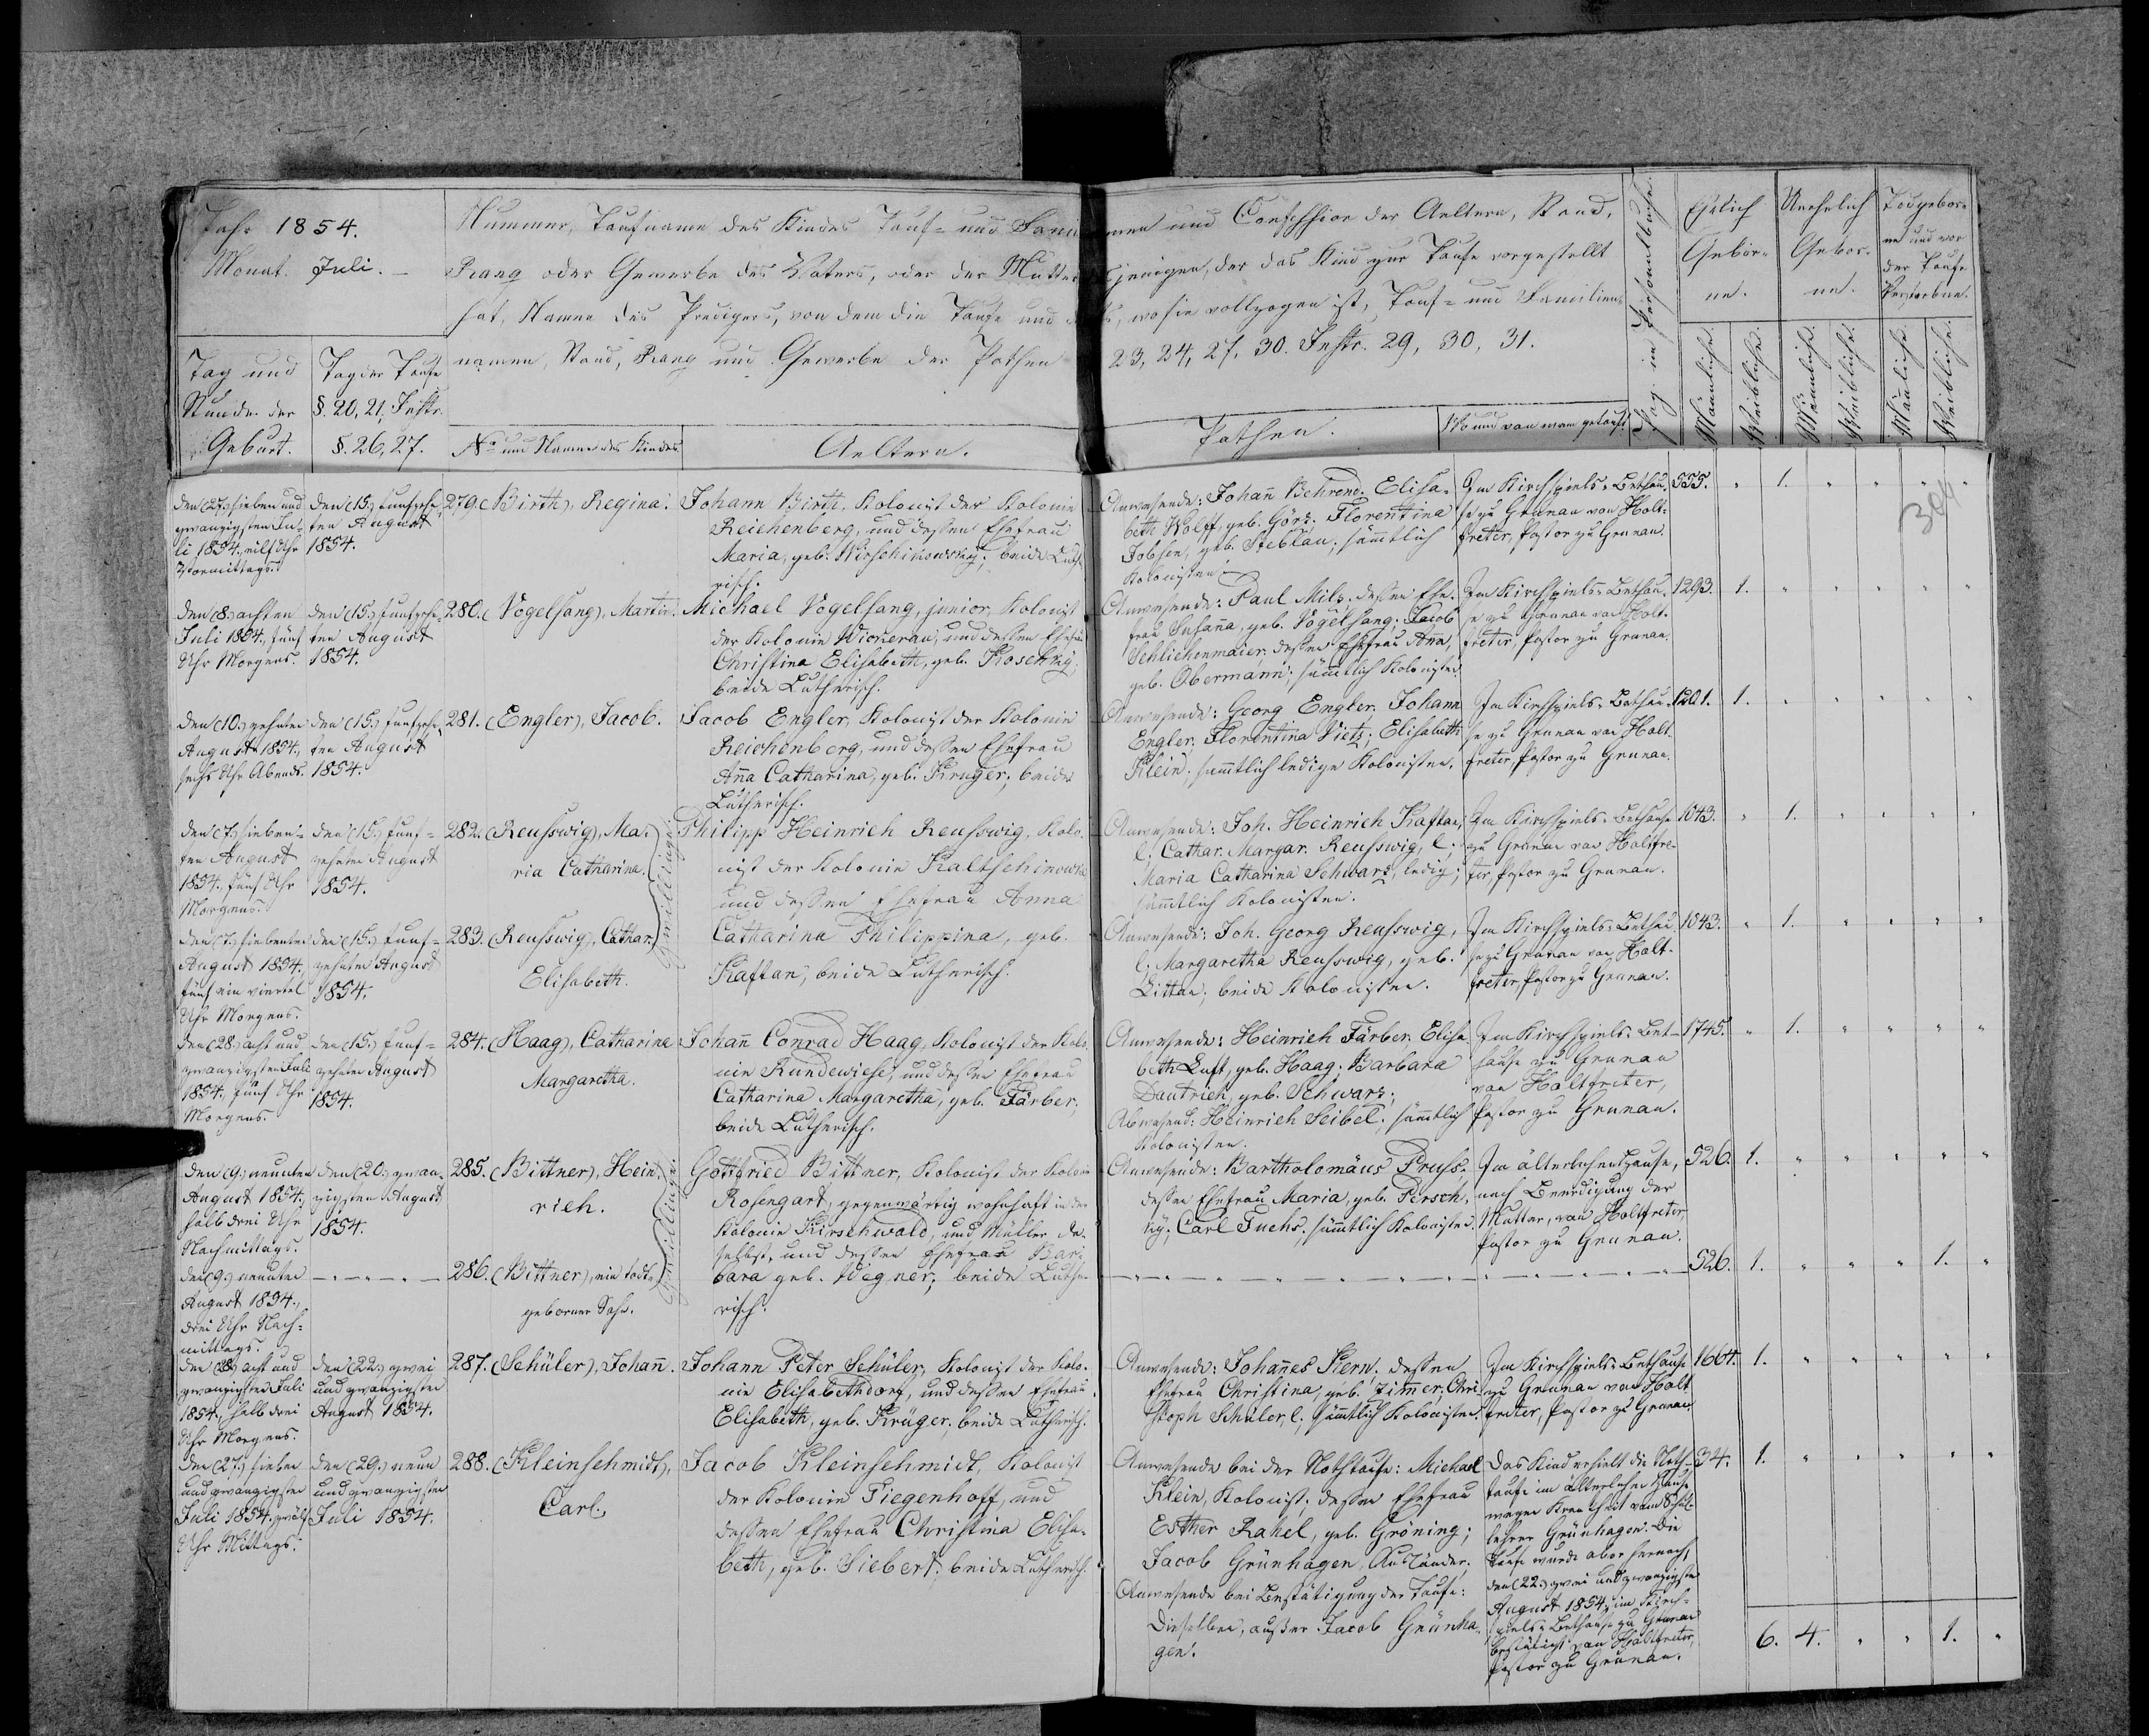 Jahr 1854.
Monat. Juli. —
Tag und
Stunde der
Geburt.
Tag der Taufe
§. 20, 21, Instr.
§. 26, 27.
Nummer, Taufname des Kindes Tauf- und Fami
men und Confession der Aeltern, Stand,
Rang oder Gewerbe des Vaters, oder der Mutter
jenigen, der das Kind zur Taufe vorgestellt
hat, Namen des Predigers, von dem die Taufe und
wo sie vollzogen ist, Tauf- und Familien
namen, Stand, Rang und Gewerbe der Pathen
23, 24, 27, 30. Instr. 29, 30, 31.
No und Namen des Kindes
Aeltern.
Pathen.
Wo und von wem getauft.
Pag. im Personalbuche.
Ehelich
Gebor-
ne.
Unehelich
Gebor-
ne.
Todgebor-
ne und vor
der Taufe
Verstorbene.
Männliche.
Weibliche.
Männliche.
Weibliche.
Männliche.
Weibliche.
304
den (27.) sieben und
zwanzigsten Ju-
li 1854., eilf Uhr
Vormittags.
den (15.) funfzehn-
ten August
1854.
279. (Birth), Regina.
Johann Birth, Kolonist der Kolonie
Reichenberg, und dessen Ehefrau
Maria, geb. Wirschinowsky; beide Luthe-
risch.
Anwesende: Johañ Behrend. Elisa-
beth Wolff, geb. Görz. Florentina
Jobsen, geb. Steblau; sämtlich
Kolonisten.
Im Kirchspiels-Bethau-
se zu Grunau von Holt-
freter, Pastor zu Grunau.
555. " 1. " " " "
den (8.) achten
Juli 1854., fünf
Uhr Morgens.
den (15.) funfzehn-
ten August
1854.
280. (Vogelsang), Martin.
Michael Vogelsang, junior, Kolonist
der Kolonie Wickerau, und dessen Ehefrau
Christina Elisabeth, geb. Koschky;
beide Lutherisch.
Anwesende: Paul Milz. dessen Ehe-
frau Susaña, geb. Vogelsang; Jacob
Schlichenmaier. dessen Ehefrau Aña,
geb. Obermañ; sämtlich Kolonisten.
Im Kirchspiels-Bethau-
se zu Grunau von Holt-
freter, Pastor zu Grunau.
1293. 1. " " " " "
den (10.) zehnten
August 1854.,
sechs Uhr Abends.
den (15.) funfzehn-
ten August
1854.
281. (Engler), Jacob.
Jacob Engler, Kolonist der Kolonie
Reichenberg, und dessen Ehefrau
Aña Catharina, geb. Kruger; beide
Lutherisch.
Anwesende: Georg Engler. Johann
Engler. Florentina Vietz; Elisabeth
Klein. sämtlich ledige Kolonisten.
Im Kirchspiels-Bethau-
se zu Grunau von Holt-
freter, Pastor zu Grunau.
1201. 1. " " " " "
den (7.) sieben-
ten August
1854. fünf Uhr
Morgens.
den (15.) funf-
zehnten August
1854.
282. (Reusswig), Ma-
ria Catharina.
Zwillinge.
Philipp Heinrich Reusswig, Kolo-
nist der Kolonie Kaltschinowka
und dessen Ehefrau Anna
Catharina Philippina, geb.
Kaftan; beide Lutherisch.
Anwesende: Joh. Heinrich Kaftan,
l; Cathar. Margar. Reusswig, l;
Maria Catharina Schwarz, ledig;
sämtlich Kolonisten.
Im Kirchspiels-Bethause
zu Grunau von Holtfre-
ter, Pastor zu Grunau.
1043. " 1. " " " "
den (7.) siebenten
August 1854.,
fünf ein viertel
Uhr Morgens.
den (15.) funf-
zehnten August
1854.
283. (Reusswig), Cathar.
Elisabeth.
Anwesende: Joh. Georg Reusswig,
l; Margaretha Reusswig, geb.
Littau; beide Kolonisten.
Im Kirchspiels-Bethau-
se zu Grunau von Holt-
freter, Pastor zu Grunau.
1043. " 1. " " " "
den (28.) acht und
zwanzigsten Juli
1854., fünf Uhr
Morgens.
den (15.) funf-
zehnten August
1854.
284. (Haag), Catharina
Margaretha.
Johañ Conrad Haag, Kolonist der Kolo-
nie Rundewiese, und dessen Ehefrau
Catharina Margaretha, geb. Färber;
beide Lutherisch.
Anwesende: Heinrich Färber. Elisa
beth Luft, geb. Haag; Barbara
Dautrich, geb. Schwarz;
Abwesend: Heinrich Seibel; sämtlich
Kolonisten.
Im Kirchspiels-Bet-
hause zu Grunau
von Holtfreter,
Pastor zu Grunau.
1745. " 1. " " " "
den (9.) neunten
August 1854.,
halb drei Uhr
Nachmittags.
den (20.) zwan-
zigsten August
1854.
285. (Bittner), Hein-
rich.
Zwillinge.
Gottfried Bittner, Kolonist der Kolonie
Rosengart, gegenwärtig wohnhaft in der
Kolonie Kirschwald, und Müller da-
selbst, und dessen Ehefrau Bar-
bara geb. Wegner; beide Luthe-
risch.
Anwesende: Bartholomäus Pruss.
dessen Ehefrau Maria, geb. Persch-
ky; Carl Fuchs. sämtlich Kolonisten.
Im älterlichen Hause,
nach Beerdigung der
Mutter, von Holtfreter,
Pastor zu Grunau.
526. 1. " " " " "
den (9.) neunten
August 1854.,
drei Uhr Nach-
mittags.
286. (Bittner), ein todt-
geborner Sohn.
526. 1. " " " 1. "
den (28.) acht und
zwanzigsten Juli
1854., halb drei
Uhr Morgens.
den (22.) zwei
und zwanzigsten
August 1854.
287. (Schüler), Johañ.
Johann Peter Schüler, Kolonist der Kolo-
nie Elisabethdorf, und dessen Ehefrau
Elisabeth, geb. Krüger; beide Lutherisch.
Anwesende: Johañes Kern. dessen
Ehefrau Christina, geb. Zimer; Chri-
stoph Schüler, l; sämtlich Kolonisten.
Im Kirchspiels-Bethause
zu Grunau von Holt
freter, Pastor zu Grunau
1664. 1. " " " " "
den (27.) sieben
und zwanzigsten
Juli 1854. zwölf
Uhr Mittags.
den (29.) neun
und zwanzigsten
Juli 1854.
288. (Kleinschmidt),
Carl.
Jacob Kleinschmidt, Kolonist
der Kolonie Tiegenhoff, und
dessen Ehefrau Christina Elisa-
beth, geb. Siebert; beide Lutherisch.
Anwesende bei der Nothtaufe: Michael
Klein, Kolonist; dessen Ehefrau
Esther Rahel, geb. Gröning;
Jacob Grünhagen, Ausländer.
Anwesende bei Bestätigung der Taufe:
Dieselben, außer Jacob Grünha-
gen.
Das Kind erhielt die Noth-
taufe im älterlichen Hause
wegen Krankheit vom Schul-
lehrer Grünhagen. Die
Taufe wurde aber hernach,
den (22.) zwei und zwanzigsten
August 1854., im Kirch-
spiels-Bethause zu Grunau
bestätigt von Holtfreter,
Pastor zu Grunau.
34. 1. " " " " "
6. 4. " " 1. "